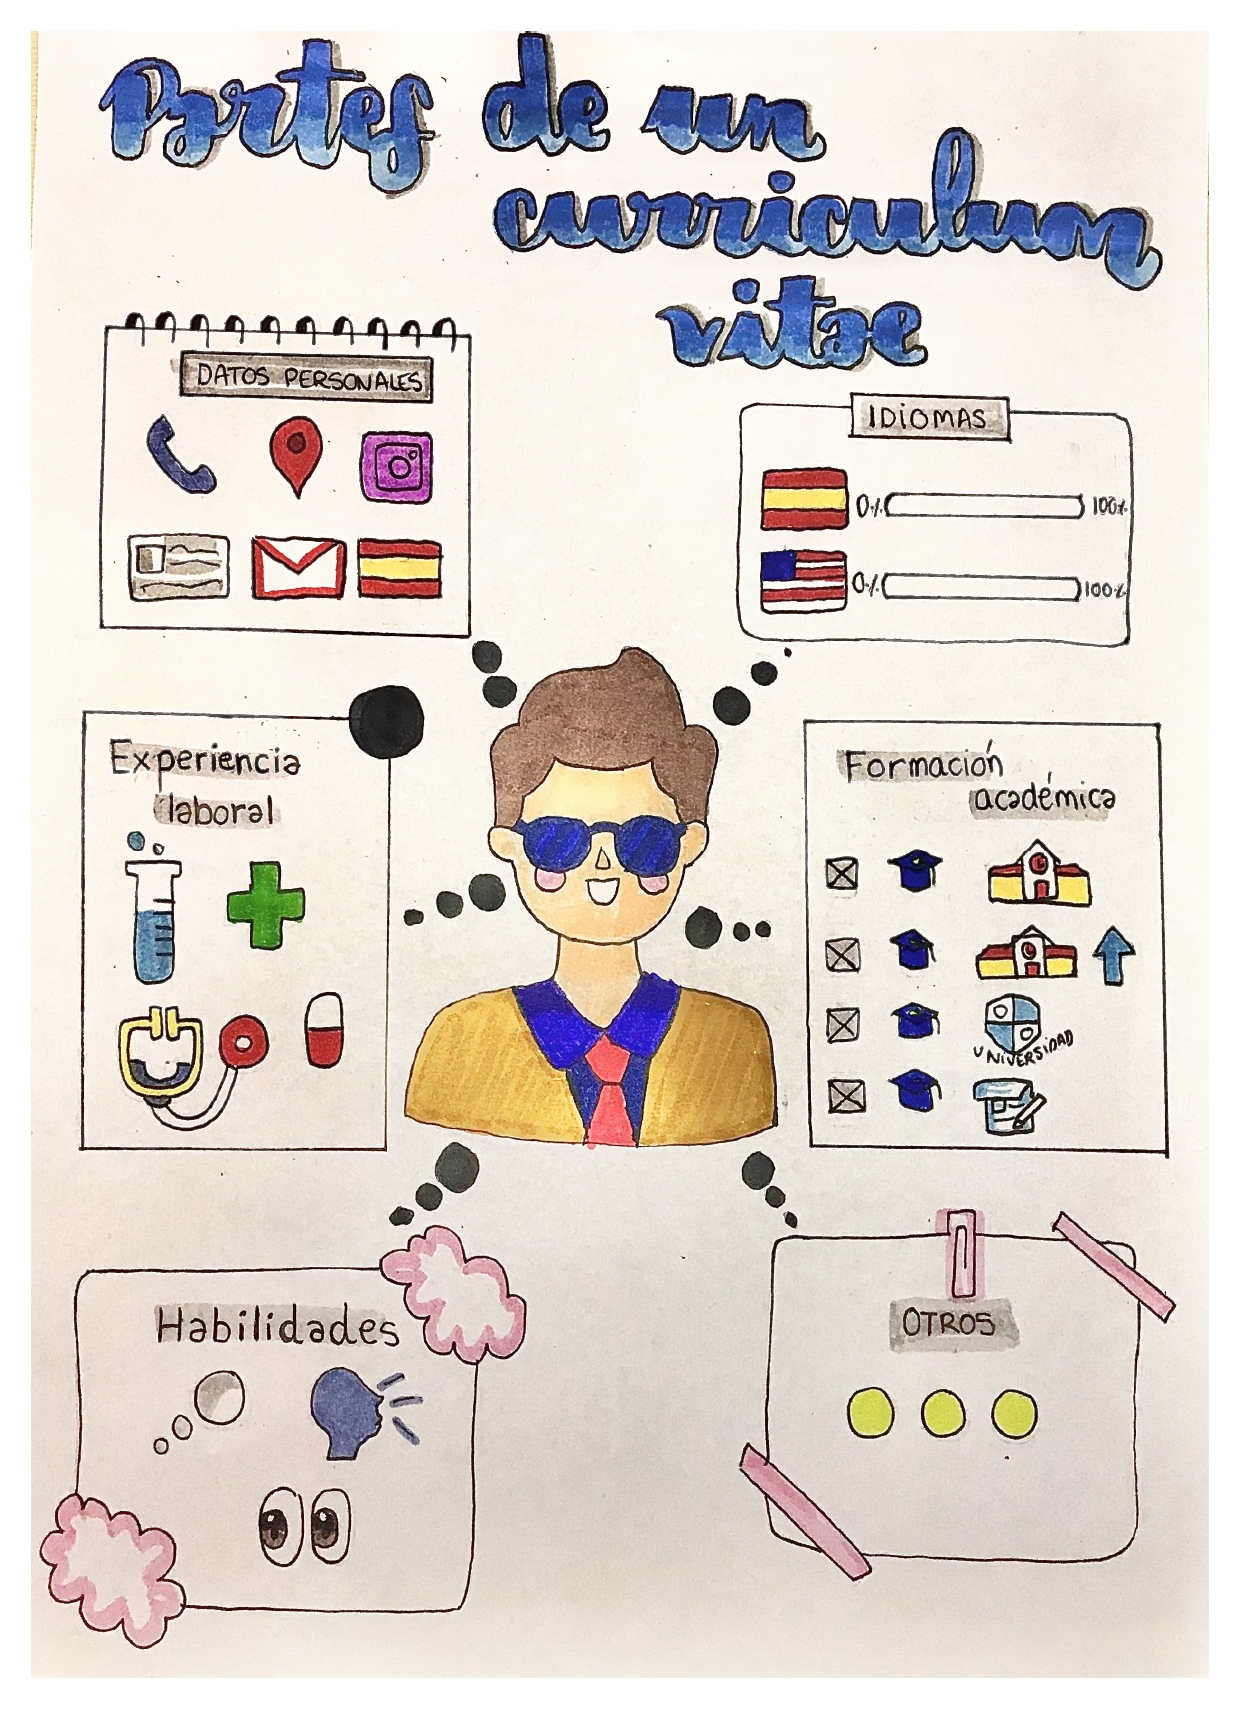 Partes de un
curriculum
vitae
DATOS PERSONALES
IDIOMAS
0% 100%
0% 100%
Experiencia
laboral
Formación
académica
UNIVERSIDAD
Habilidades
OTROS